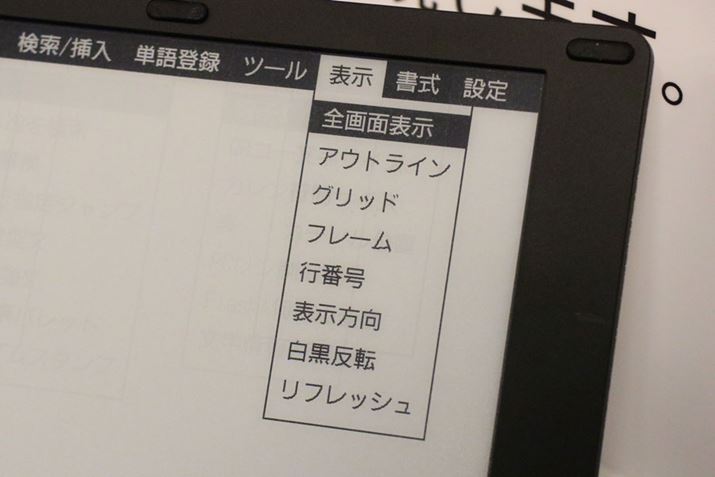 します。
検索/挿入 単語登録 ツール 表示 書式 設定
全画面表示
アウトライン
グリッド
フレーム
行番号
表示方向
白黒反転
リフレッシュ